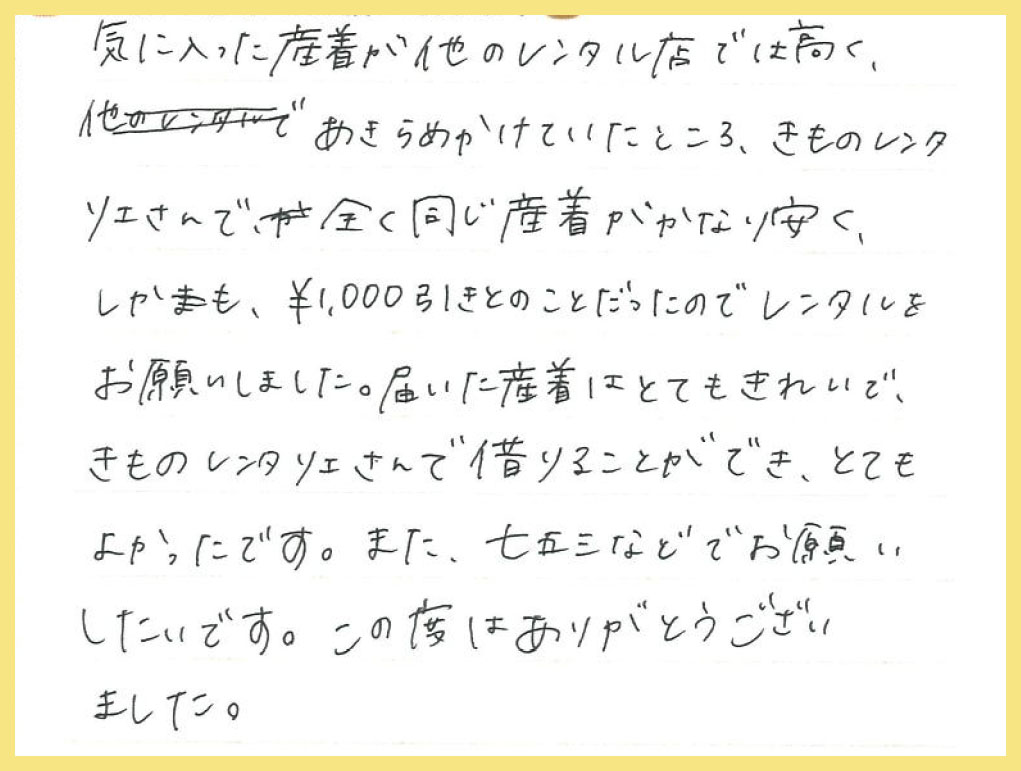 気に入った産着が他のレンタル店では高く、
他のレンタルで あきらめかけていたところ、きものレンタ
リエさんで、が全く同じ産着がかなり安く、
しかまも、¥1,000引きとのことだったのでレンタルを
お願いしました。届いた産着はとてもきれいで、
きものレンタリエさんで借りることができ、とても
よかったです。また、七五三などでお願い
したいです。この度はありがとうござい
ました。